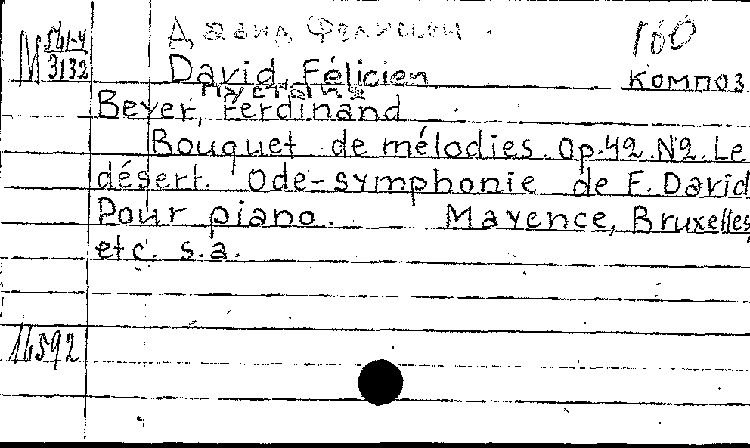 Давид Фелисьен 160
М 561-4/3132 David, Félicien композ
пустыня
Beyer, Ferdinand
Bouquet de mélodies. Op. 42. N2. Le
désert. Ode-symphonie de F. David
Pour piano. Mayence, Bruxelles
etc. s.a.
16592